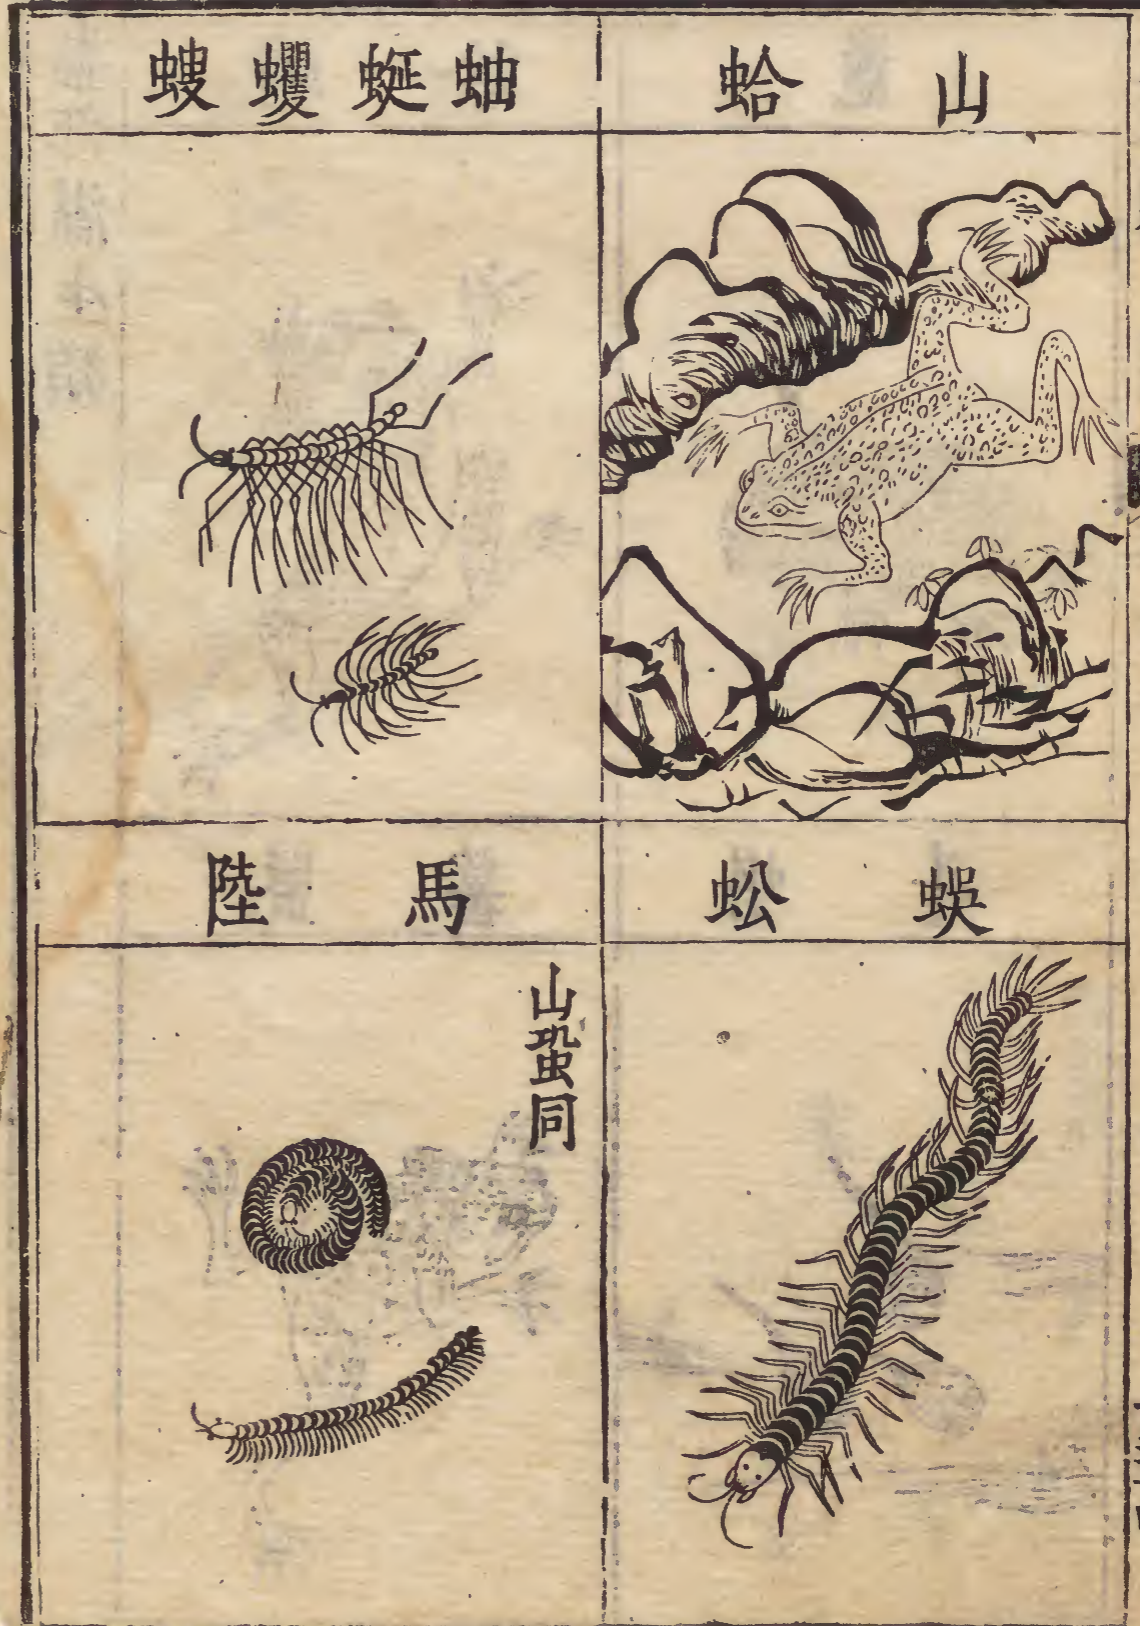 山蛤
蚰蜒蠼螋
蜈蚣
馬陸
山蛩同